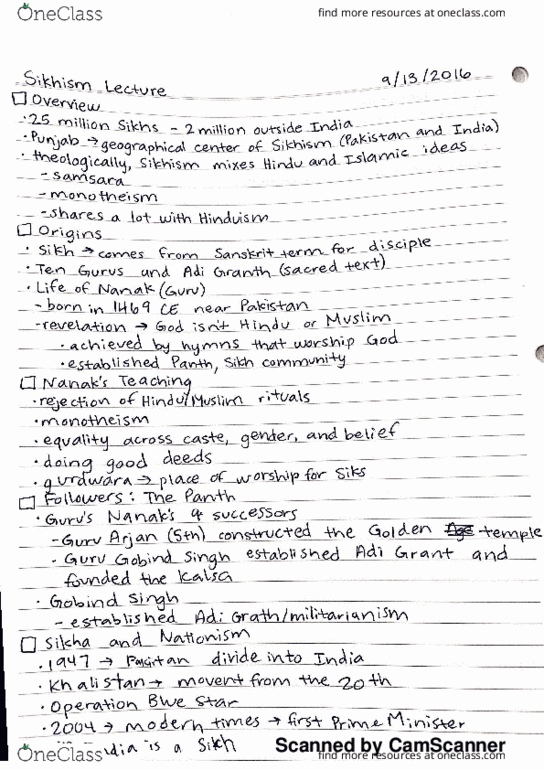 OneClass
find more resources at oneclass.com
Sikhism Lecture 9/13/2016
Overview
·25 million Sikhs - 2 million outside India
·Punjab → geographical center of Sikhism (Pakistan and India)
·theologically, Sikhism mixes Hindu and Islamic ideas
-samsara
-monotheism
-shares a lot with Hinduism
Origins
·Sikh → comes from Sanskrit term for disciple
·Ten Gurus and Adi Granth (sacred text)
·Life of Nanak (Guru)
-born in 1469 CE near Pakistan
-revelation → God isn't Hindu or Muslim
·achieved by hymns that worship God
·established Panth, Sikh community
Nanak's Teaching
·rejection of Hindu/Muslim rituals
·monotheism
·equality across caste, gender, and belief
·doing good deeds
·gurdwara → place of worship for Siks
Followers: The Panth
·Guru's Nanak's 9 successors
-Guru Arjan (5th) constructed the Golden temple
-Guru Gobind Singh established Adi Grant and
founded the Kalsa
·Gobind Singh
-established Adi Grath/militarianism
Sikha and Nationism
·1947 → Pakistan divide into India
·Khalistan → movent from the 20th
·Operation Blue Star
·2004 → modern times → first Prime Minister
is a Sikh
OneClass
Scanned by CamScanner
find more resources at oneclass.com